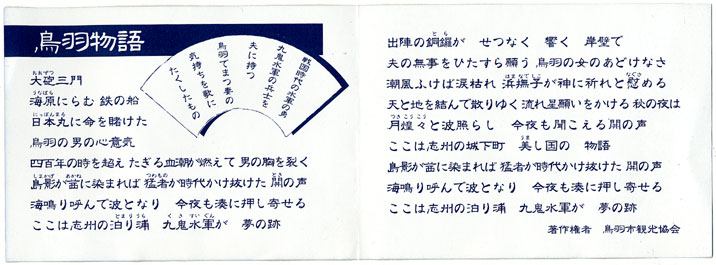 鳥羽物語
戦国時代の水軍の勇
九鬼水軍の兵士を
夫に持つ
鳥羽でまつ妻の
気持ちを歌に
たくしたもの
おおずつ
大砲三門
うなばら
海原にらむ 鉄の船
にっぽんまる
日本丸に命を賭けた
鳥羽の男の心意気
四百年の時を超え たぎる血潮が燃えて 男の胸を裂く
しまかげ あかね つわもの とき
島影が茜に染まれば 猛者が時代かけ抜けた 閧の声
海鳴り呼んで波となり 今夜も湊に押し寄せる
とまりうら くきすいぐん
ここは志州の泊り浦 九鬼水軍が 夢の跡
とら
出陣の銅鑼が せつなく 響く 岸壁で
夫の無事をひたすら願う 鳥羽の女のあどけなさ
はまなでしこ なぐさ
潮風ふけば涙枯れ 浜撫子が神に祈れと慰める
天と地を結んで散りゆく 流れ星願いをかける 秋の夜は
つきこうこう
月煌々と波照らし 今夜も聞こえる 閧の声
うま
ここは志州の城下町 美し国の 物語
島影が茜に染まれば 猛者が時代かけ抜けた 閧の声
海鳴り呼んで波となり 今夜も湊に押し寄せる
ここは志州の泊り浦 九鬼水軍が 夢の跡
著作権者 鳥羽市観光協会